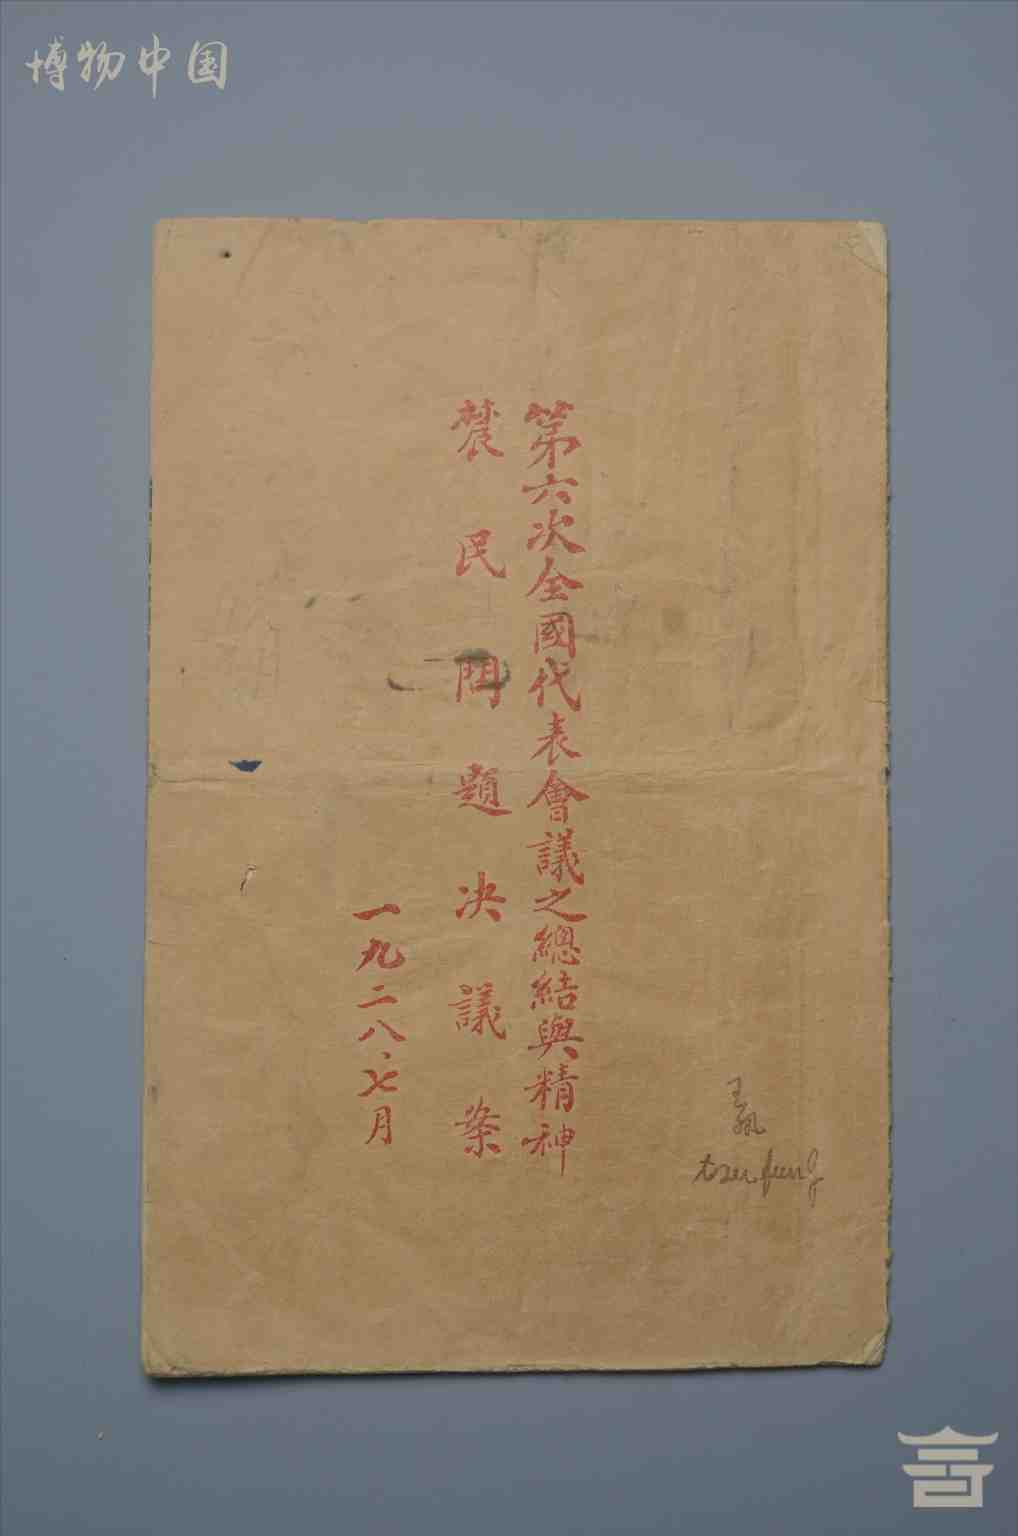 博物中国
第六次全國代表會議之總結與精神
農民問題決議案
一九二八、七月
王
tzu fung